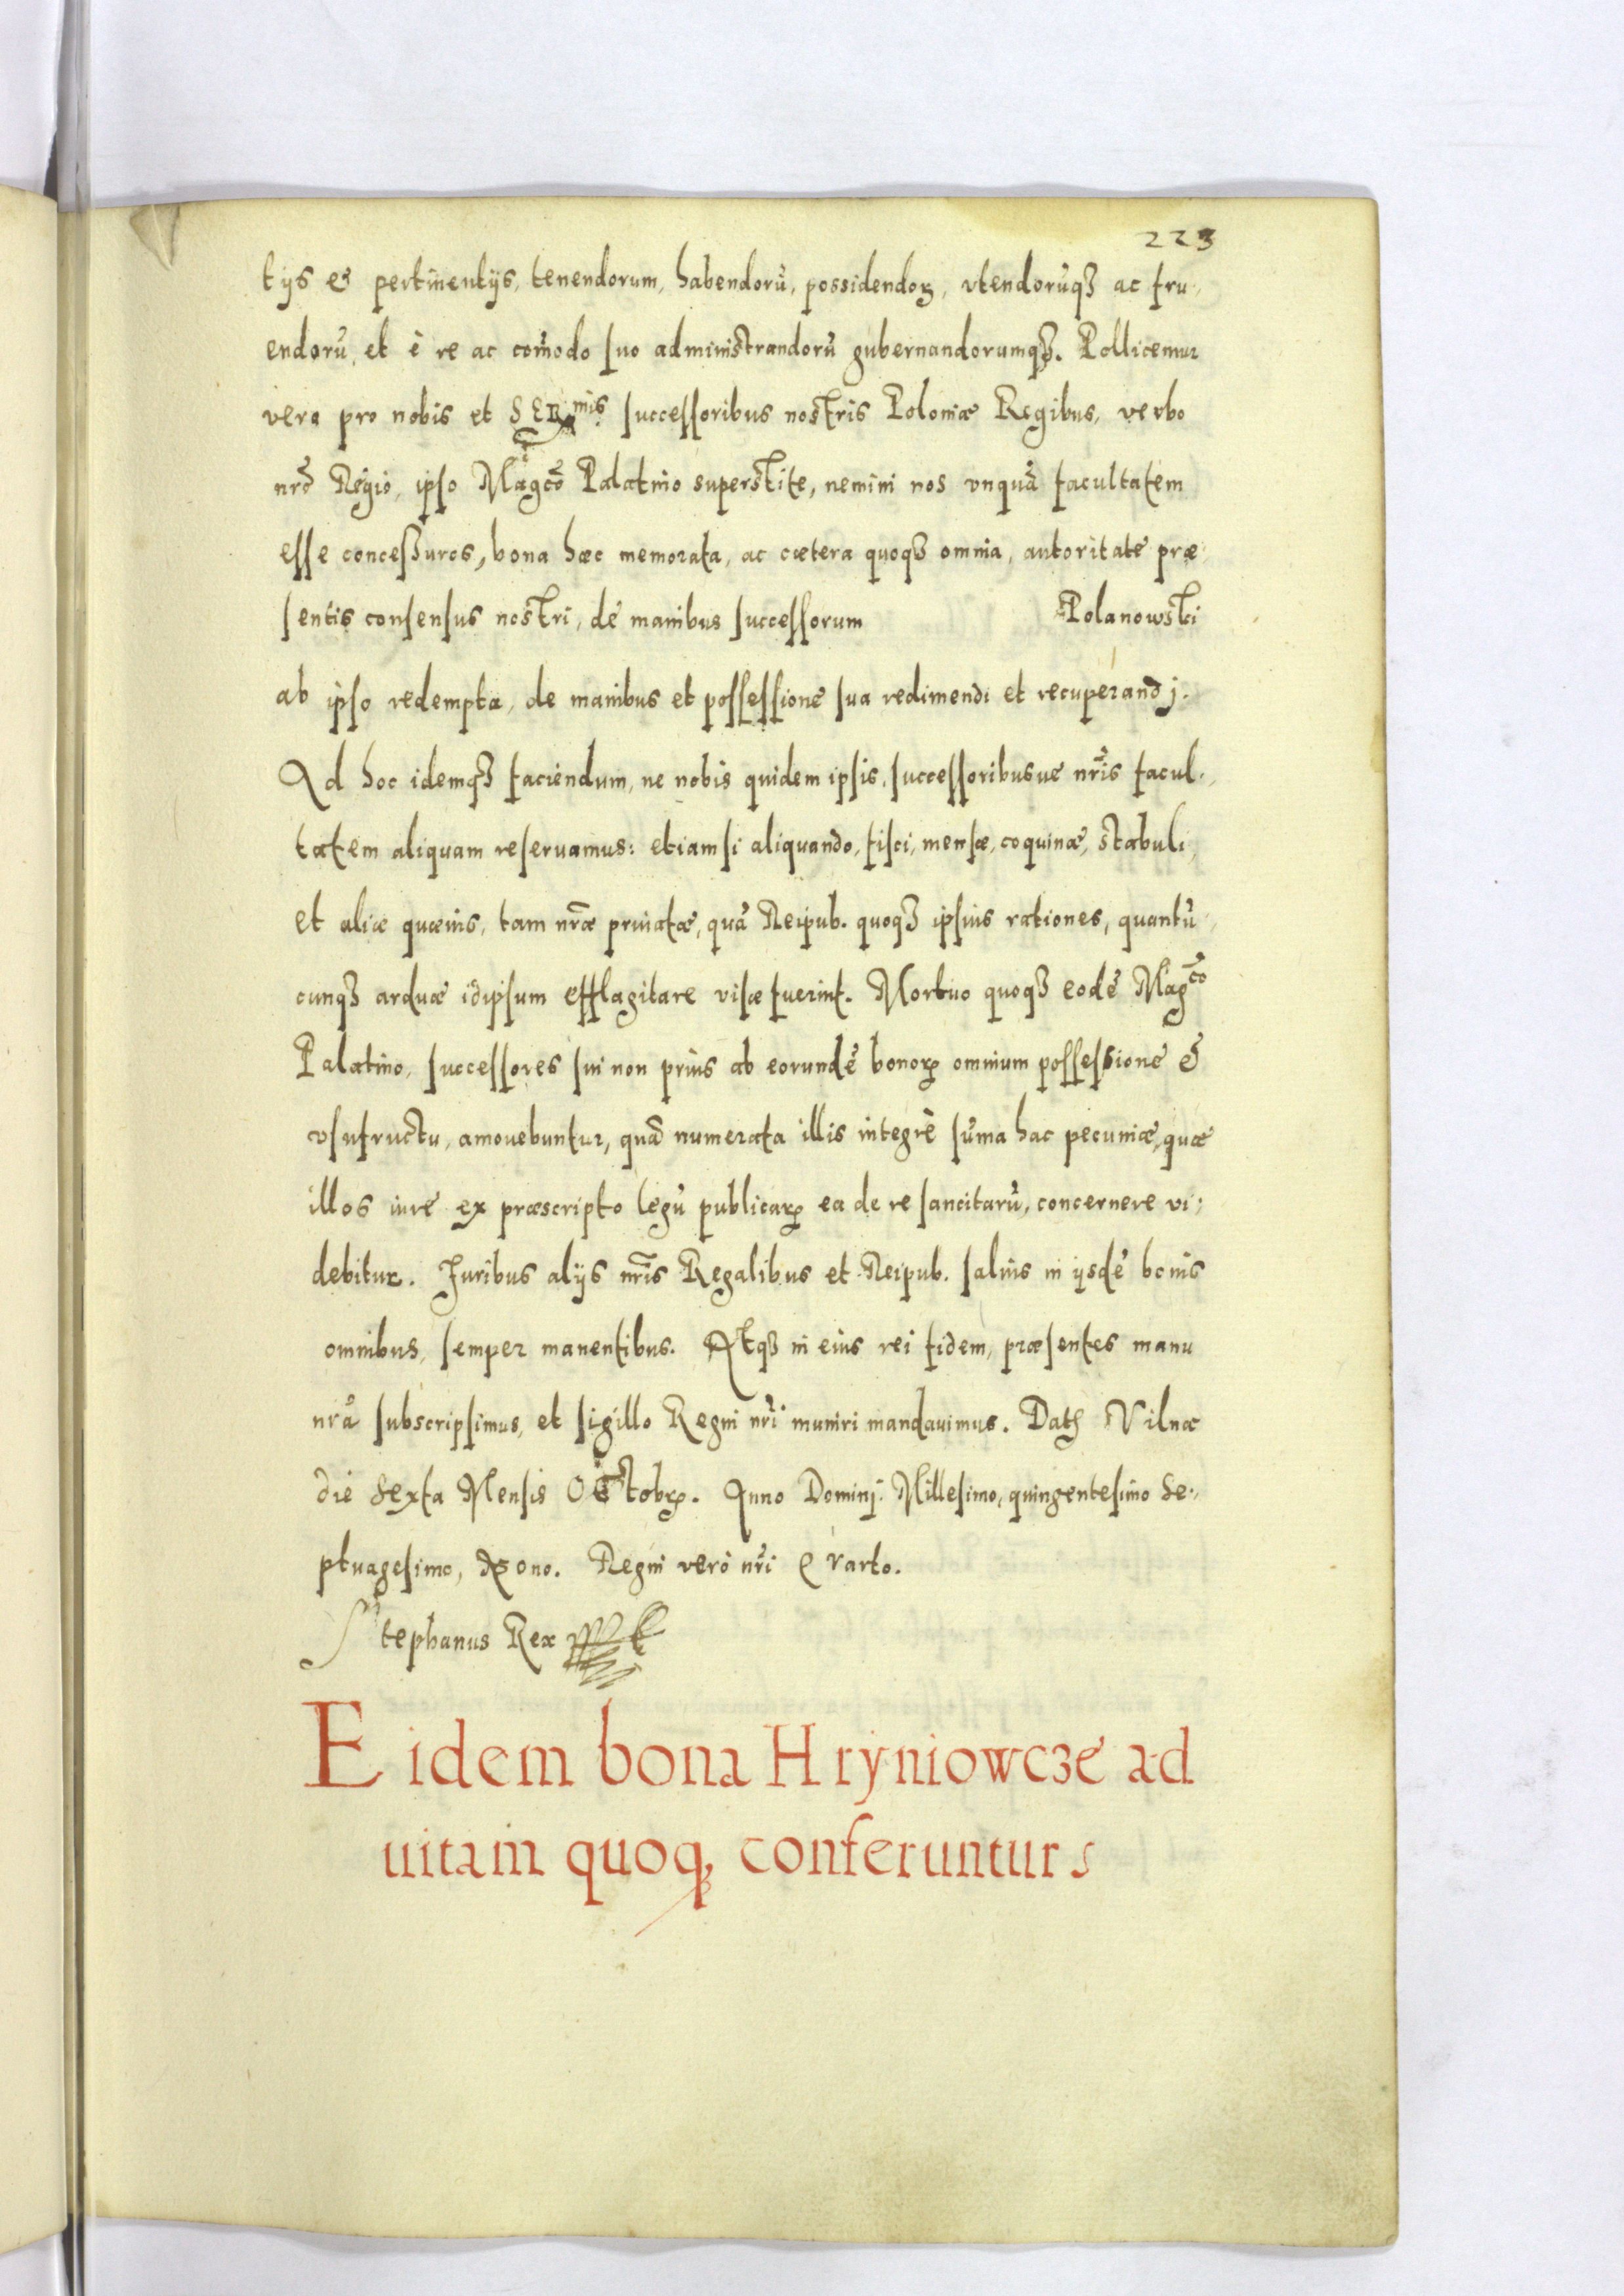 223
tijs et pertinentijs, tenendorum, habendorũ, possidendoꝝ, vtendorũqꝫ ac fru,
endorũ, et è re ac com̃odo suo administrandorũ gubernandorumqꝫ. Pollicemur
vero pro nobis et SERmis. successoribus nostris Poloniæ Regibus, verbo
nr̃o Regio, ipso Magco Palatino superstite, nemini nos vnquã facultatem
esse concessuros, bona hæc memorata, ac cætera quoqꝫ omnia, autoritate præ
sentis consensus nostri, de manibus successorum Polanowski
ab ipso redempta, de manibus et possessione sua redimendi et recuperandj.
Ad hoc idemqꝫ faciendum, ne nobis quidem ipsis, successoribusue nr̃is facul,
tatem aliquam reseruamus: etiamsi aliquando, fisci, mensæ, coquinæ, stabuli,
et aliæ quæuis, tam nr̃æ priuatæ, quã Reipub. quoqꝫ ipsius rationes, quantũ
cunqꝫ arduæ idipsum efflagitare visæ fuerint. Mortuo quoqꝫ eodẽ Magco
Palatino, successores sui non prius ab eorundẽ bonoꝝ omnium possessione et
vsufructu, amouebuntur, quã numerata illis integrè sum̃a hac pecuniæ, quæ
illos iure ex præscripto legũ publicaꝝ ea de re sancitarũ, concernere vi:
debitur. Juribus alijs nr̃is Regalibus et Reipub. saluis in ijsdẽ bonis
omnibus, semper manentibus. Atqꝫ in eius rei fidem, præsentes manu
nr̃a subscripsimus, et sigillo Regni nr̃i muniri mandauimus. Datꝭ Vilnæ
die Sexta Mensis Octobꝝ. Anno Dominj. Millesimo, quingentesimo Se,
ptuagesimo, Nono. Regni verò nr̃i Qvarto.
Stephanus Rex
Eidem bona Hryniowcze ad
uitam quoqꝫ conferuntur